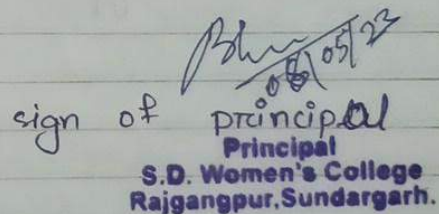 06/05/23
sign of principal
Principal
S.D. Women's College
Rajgangpur,Sundargarh.